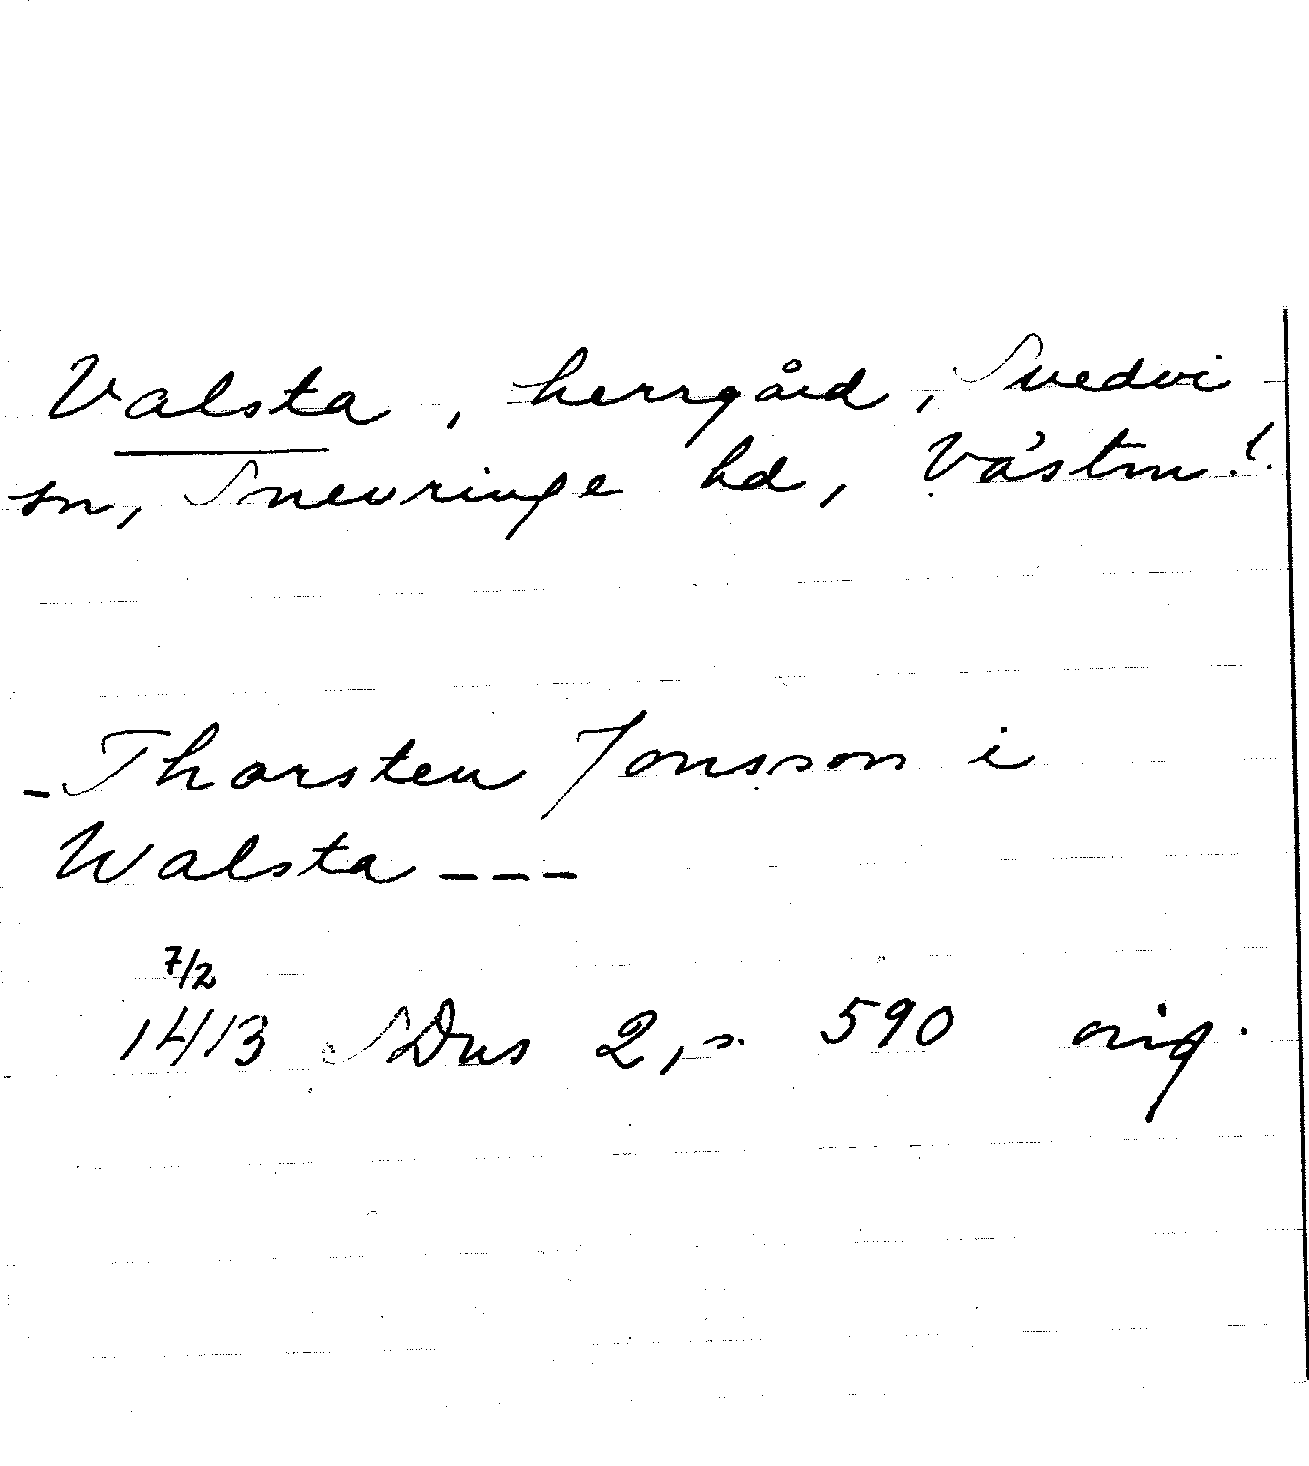 Valsta, herrgård, Svedvi
sn, Snevringe hd, Västm. l.
-Thorsten Jonsson i
Walsta ---
7/2
1413 SDns 2, s. 590 orig.